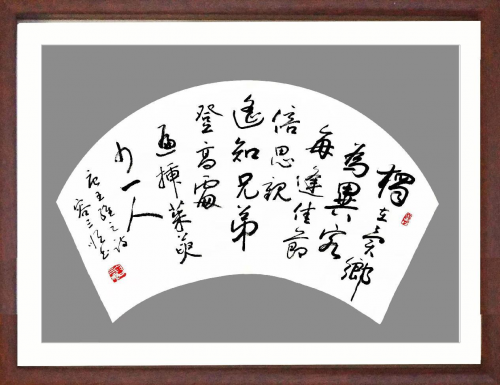 獨在異鄉
為異客
每逢佳節
倍思親
遙知兄弟
登高處
遍插茱萸
少一人
唐王維之詩